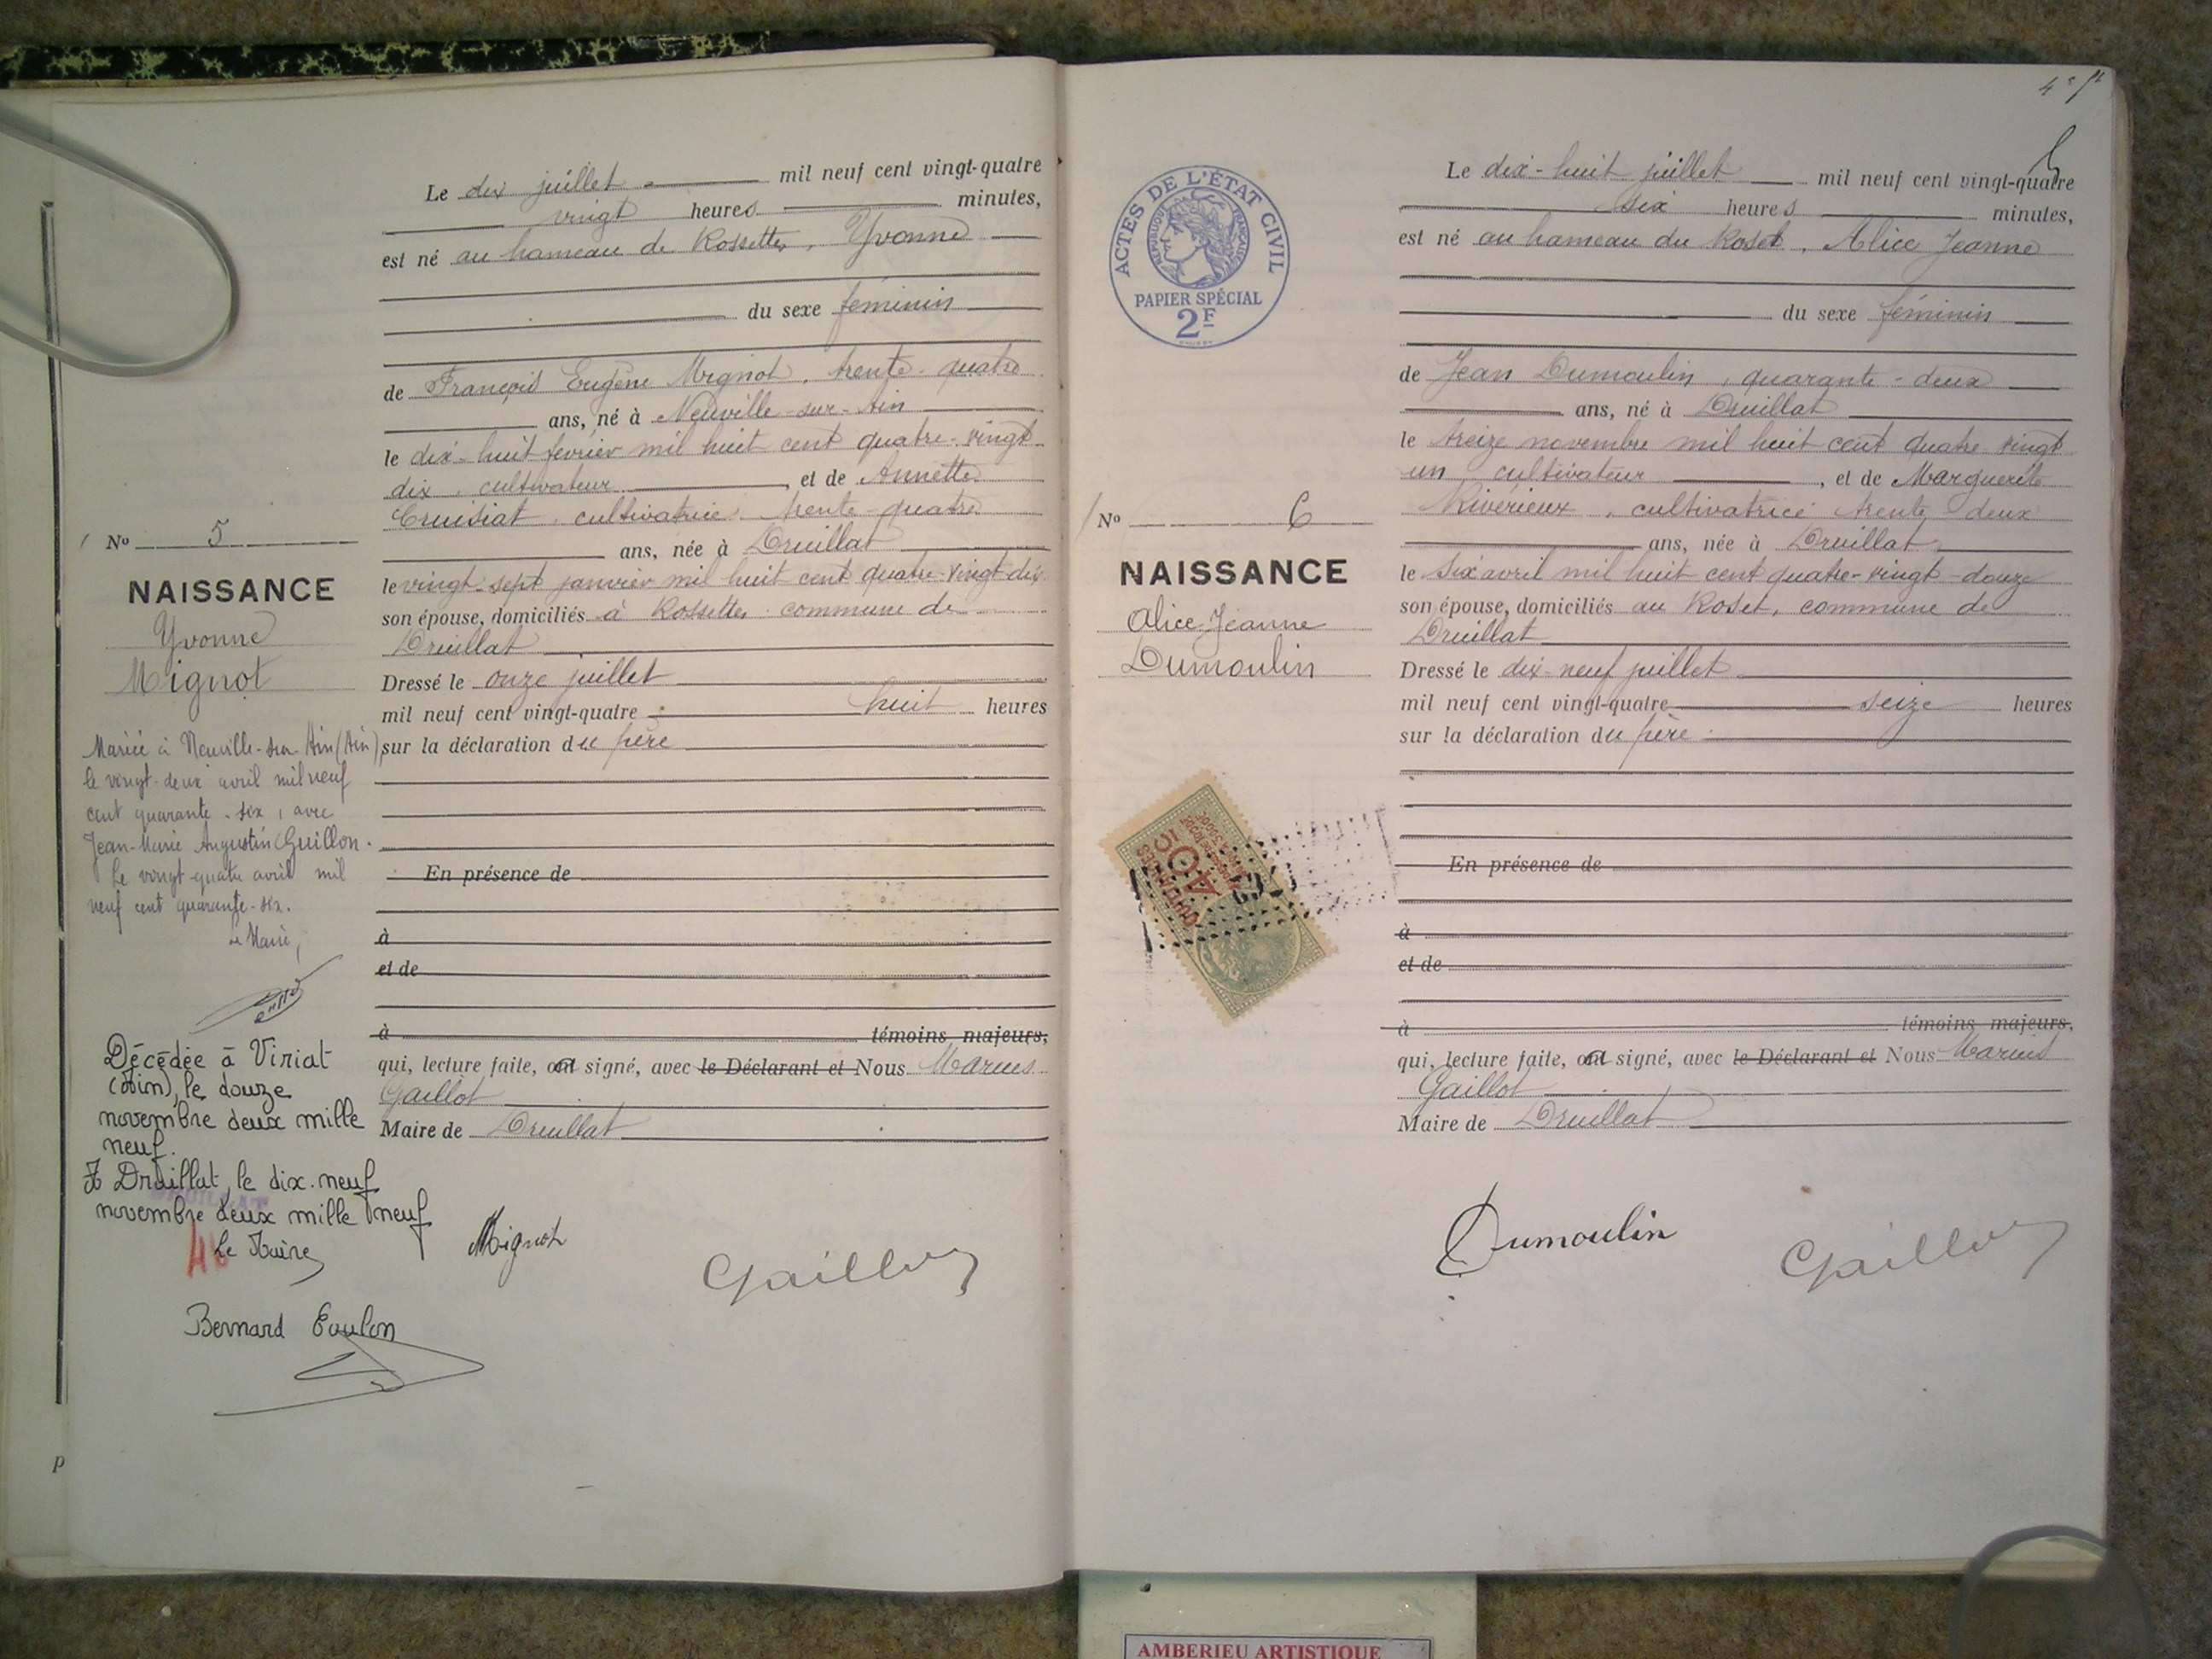 Le dix juillet mil neuf cent vingt-quatre
vingt heures minutes,
est né au hameau de Rossettes, Yvonne
du sexe féminin
de François Eugène Mignot, trente-quatre
ans, né à Neuville-sur-Ain
le dix-huit février mil huit cent quatre-vingt
dix, cultivateur, et de Annette
Cruisiat, cultivatrice, trente-quatre
ans, née à Druillat
le vingt-sept janvier mil huit cent quatre-vingt-dix
son épouse, domiciliés à Rossettes commune de
Druillat
Dressé le onze juillet
mil neuf cent vingt-quatre huit heures
sur la déclaration du père
En présence de
à
et de
à témoins majeurs,
qui, lecture faite, ont signé, avec le Déclarant et Nous Marius
Gaillot
Maire de Druillat
Mignot
Gaillot
No 5
NAISSANCE
Yvonne
Mignot
Mariée à Neuville-sur-Ain (Ain),
le vingt-deux avril mil neuf
cent quarante-six, avec
Jean-Marie Augustin Guillon.
Le vingt-quatre avril mil
neuf cent quarante-six.
Le Maire,
Décédée à Viriat
(Ain), le douze
novembre deux mille
neuf.
Druillat, le dix.neuf
novembre deux mille neuf
Le Maire
Bernard
P
4e
ACTES DE L'ÉTAT CIVIL
RÉPUBLIQUE FRANÇAISE
PAPIER SPÉCIAL
2F
Le dix-huit juillet mil neuf cent vingt-quatre
six heures minutes,
est né au hameau du Roset, Alice Jeanne
du sexe féminin
de Jean Dumoulin, quarante-deux
ans, né à Druillat
le treize novembre mil huit cent quatre vingt
un cultivateur, et de Marguerite
Rivérieux, cultivatrice trente-deux
ans, née à Druillat
le six avril mil huit cent quatre-vingt-douze
son épouse, domiciliés au Roset, commune de
Druillat
Dressé le dix-neuf juillet
mil neuf cent vingt-quatre seize heures
sur la déclaration du père
En présence de
à
et de
à témoins majeurs,
qui, lecture faite, ont signé, avec le Déclarant et Nous Marius
Gaillot
Maire de Druillat
Dumoulin
Gaillot
No 6
NAISSANCE
Alice Jeanne
Dumoulin
AMBERIEU ARTISTIQUE